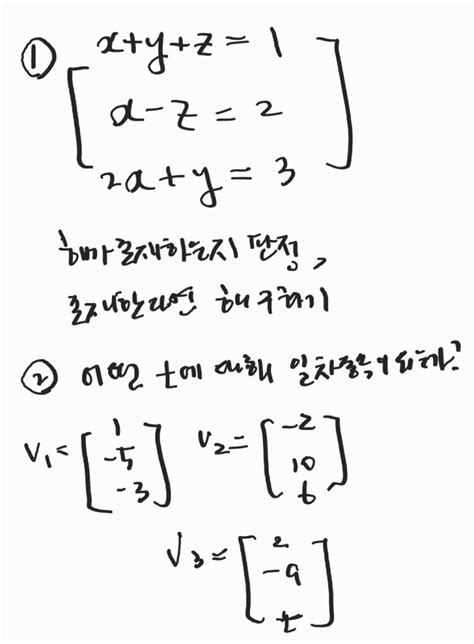 ① x+y+z = 1
x-z = 2
2x+y = 3
해가 존재하는지 판정,
존재한다면 해 구하기
② 어떤 t에 대해 일차종속이 되는가?
V₁= [1 -5 -3] V₂= [-2 10 6]
V₃= [2 -9 t]